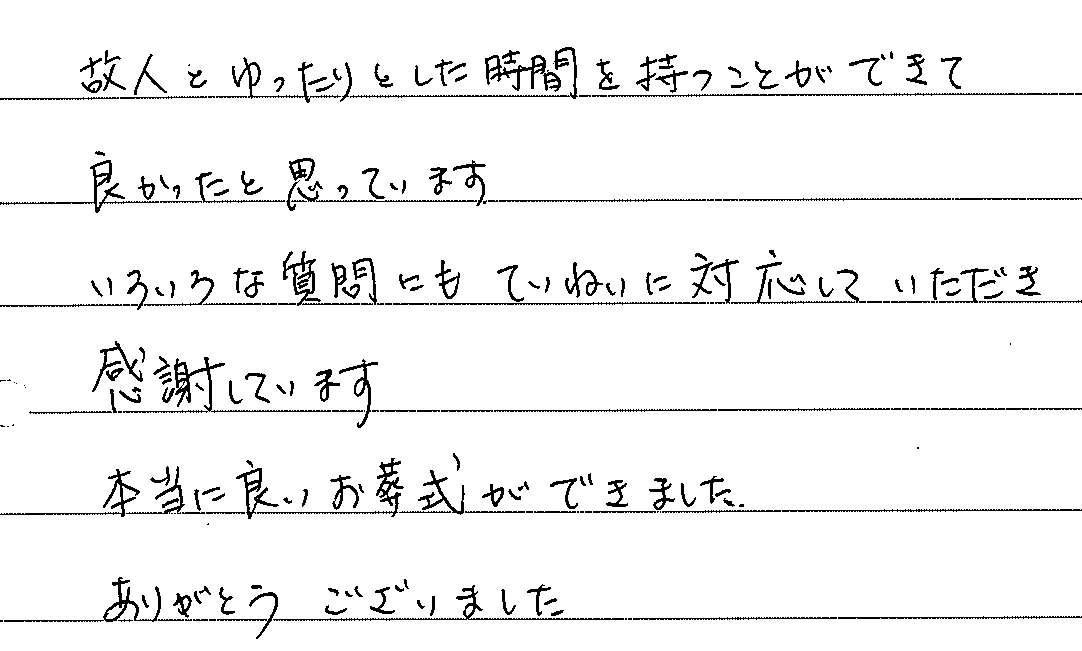 故人とゆったりとした時間を持つことができて
良かったと思っています
いろいろな質問にも ていねいに対応して いただき
感謝しています
本当に良いお葬式ができました.
ありがとう ございました